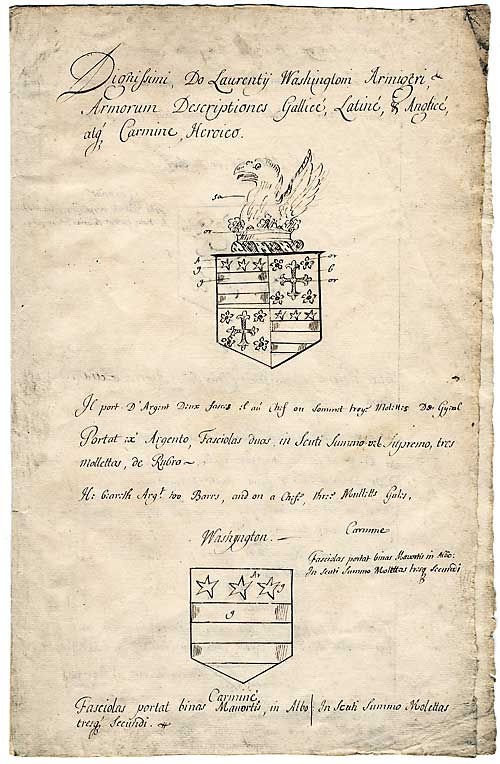 Dignissimi, Do Laurentij Washingtoni Armigeri,
Armorum Descriptiones Gallicé, Latiné, & Anglicé,
atq́ Carmine, Heroico.
sa
or
A
g
g
or
b
or
g
Il port D'Argent Deux fasces et au Chef ou sommet troys Molettes De
Portat ex Argento, Fasciolas duas, in Scuti Summo vel Supremo, tres
Mollettas, de Rubro ~
He beareth Argt. too Barrs, and on a Chefe, three Mulletts Gules,
Washington. —
Carmine
Fasciolas portat binas Mavortis in Albo:
In Scuti Summo Molettas tresq́ Secundi
Ar
g
g
Carminé
Fasciolas portat binas Mavortis, in Albo | In Scuti Summo Molettas
tresq́ Secundi.